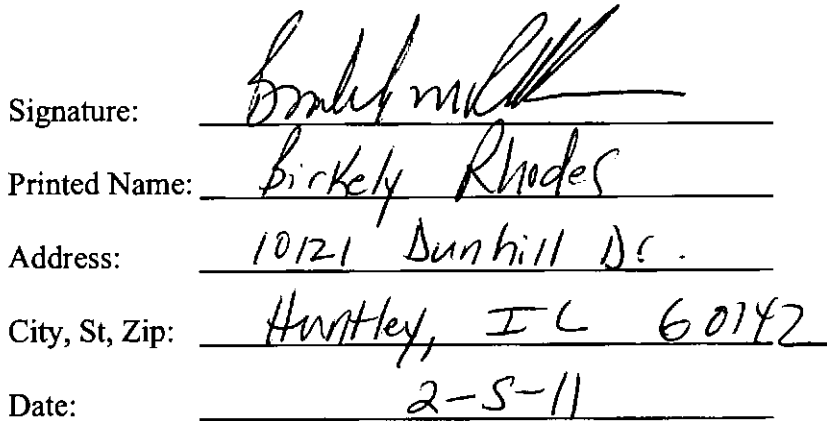 Signature:
Printed Name: Birkely Rhodes
Address: 10121 Dunhill Dr.
City, St, Zip: Huntley, IL 60142
Date: 2-5-11